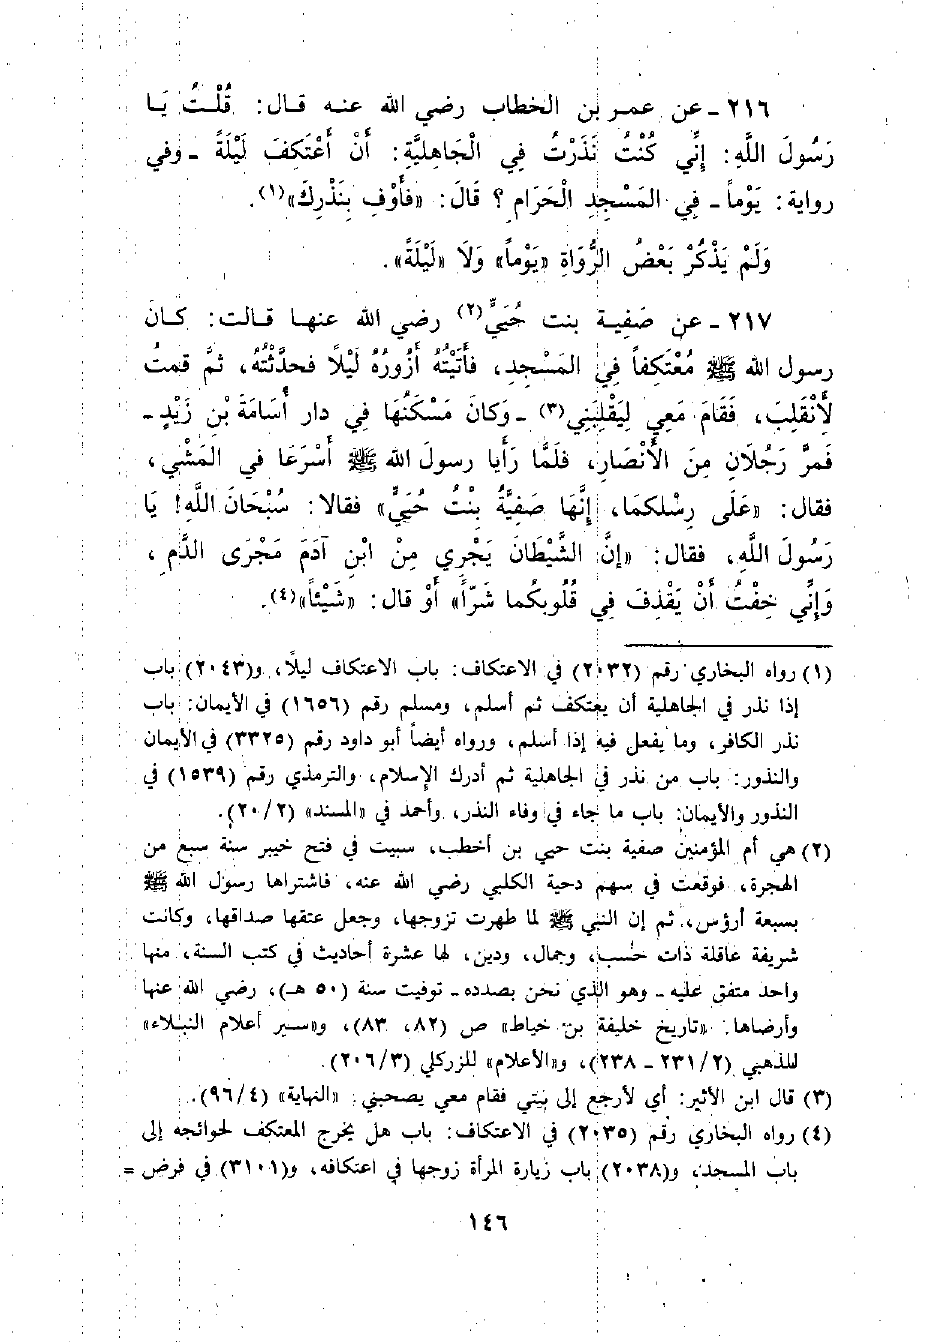 ٢١٦ ـ عن عمر بن الخطاب رضي الله عنه قال: قُلْتُ يَا
رَسُولَ اللَّهِ: إِنِّي كُنْتُ نَذَرْتُ فِي الْجَاهِليَّةِ: أَنْ أَعْتَكِفَ لَيْلَةً ـ وفي
رواية: يَوْماً ـ فِي المَسْجِدِ الْحَرَامِ؟ قَالَ: «فَأَوْفِ بِنَذْرِكَ»(١).
وَلَمْ يَذْكُرْ بَعْضُ الرُّوَاةِ «يَوْماً» وَلَا «لَيْلَةً».
٢١٧ ـ عن صَفِيـة بنت حُيَيٍّ(٢) رضي الله عنهـا قـالت: كـانَ
رسول الله ﷺ مُعْتَكِفاً فِي المَسْجِدِ، فَأَتَيْتُهُ أَزُورُهُ لَيْلاً فحدَّثْتُهُ، ثمَّ قمتُ
لأَنْقَلِبَ، فَقَامَ مَعِي لِيَقْلِبَنِي(٣) ـ وَكانَ مَسْكَنُهَا فِي دار أُسَامَةَ بْن زَيْدٍ ـ
فَمرَّ رَجُلَانِ مِنَ الأَنْصَارِ، فلَمَّا رَأَيا رسولَ الله ﷺ أَسْرَعَا في المَشْي،
فقال: «عَلَى رِسْلكمَا، إِنَّهَا صَفِيَّةُ بِنْتُ حُيَيٍّ» فقالا: سُبْحَانَ اللَّهِ! يَا
رَسُولَ اللَّهِ، فقال: «إنَّ الشَّيْطَانَ يَجْرِي مِنْ ابْنِ آدَمَ مَجْرَى الدَّم،
وَإِنِّي خِفْتُ أَنْ يَقْذِفَ فِي قُلُوبِكُما شَرّاً» أَوْ قال: «شَيْئاً»(٤).
(١) رواه البخاري رقم (٢٠٣٢) في الاعتكاف: باب الاعتكاف ليلًا، و(٢٠٤٣) باب
إذا نذر في الجاهلية أن يعتكف ثم أسلم، ومسلم رقم (١٦٥٦) في الأيمان: باب
نذر الكافر، وما يفعل فيه إذا أسلم، ورواه أيضاً أبو داود رقم (٣٣٢٥) في الأيمان
والنذور: باب من نذر في الجاهلية ثم أدرك الإسلام، والترمذي رقم (١٥٣٩) في
النذور والأيمان: باب ما جاء في وفاء النذر، وأحمد في «المسند» (٢٠/٢).
(٢) هي أم المؤمنين صفية بنت حيي بن أخطب، سبيت في فتح خيبر سنة سبع من
الهجرة، فوقعت في سهم دحية الكلبي رضي الله عنه، فاشتراها رسول الله ﷺ
بسبعة أرؤس، ثم إن النبي ﷺ لما طهرت تزوجها، وجعل عتقها صداقها، وكانت
شريفة عاقلة ذات حسب، وجمال، ودين، لها عشرة أحاديث في كتب السنة، منها
واحد متفق عليه ـ وهو الذي نحن بصدده ـ توفيت سنة (٥٠ هـ)، رضي الله عنها
وأرضاها. «تاريخ خليفة بن خياط» ص (٨٢، ٨٣)، و«سير أعلام النبلاء»
للذهبي (٢٣١/٢ ـ ٢٣٨)، و«الأعلام» للزركلي (٢٠٦/٣).
(٣) قال ابن الأثير: أي لأرجع إلى بيتي فقام معي يصحبني: «النهاية» (٩٦/٤).
(٤) رواه البخاري رقم (٢٠٣٥) في الاعتكاف: باب هل يخرج المعتكف لحوائجه إلى
باب المسجد، و(٢٠٣٨) باب زيارة المرأة زوجها في اعتكافه، و(٣١٠١) في فرض =
١٤٦